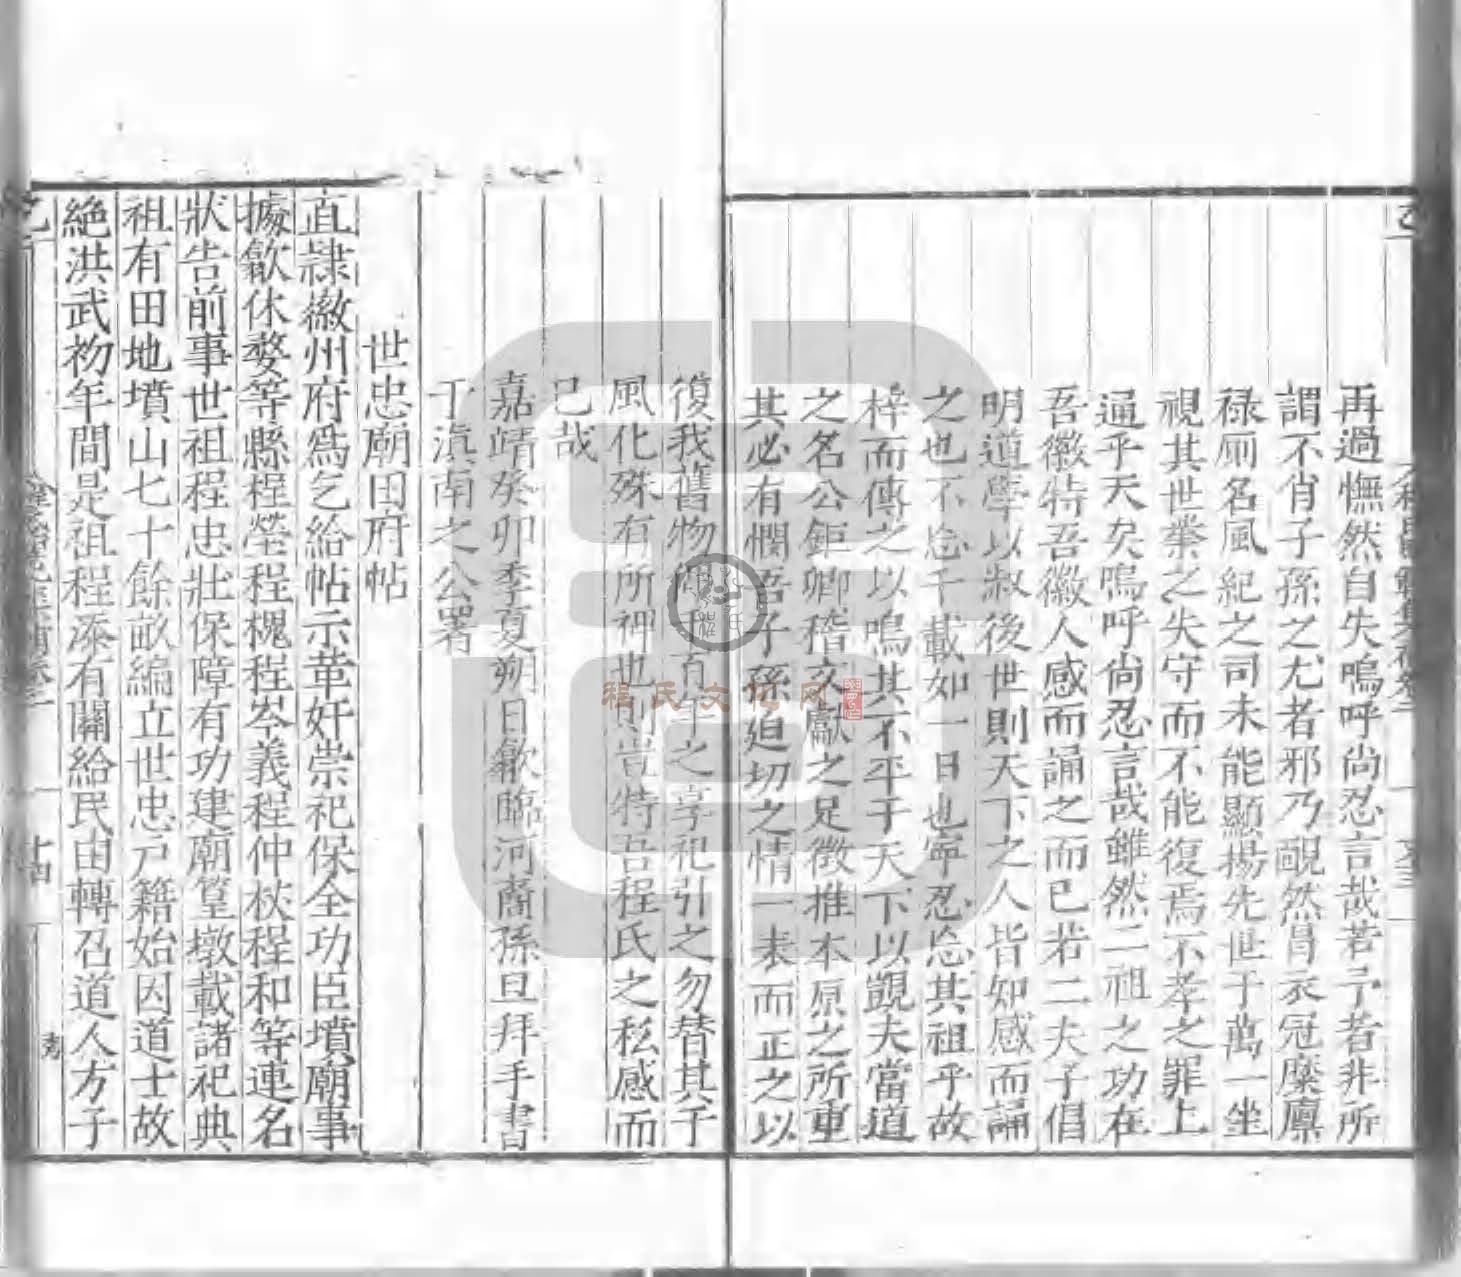 再過憮然自失嗚呼尚忍言哉若予者非所
謂不肖子孫之尤者邪乃靦然冒衣冠縻廪
禄厠名風紀之司未能顯揚先世于萬一坐
視其世業之失守而不能復焉不孝之罪上
通乎天矣嗚呼尚忍言哉雖然二祖之功在
吾徽特吾徽人感而誦之而已若二夫子倡
明道學以淑後世則天下之人皆知感而誦
之也不忘千載如一日也寧忍忘其祖乎故
梓而傳之以鳴其不平于天下以覬夫當道
之名公鉅卿稽文獻之足徴推本原之所重
其必有憫吾子孫廹切之情一表而正之以
復我舊物 我 百年之享祀引之勿替其于
風化殊有所裨也則豈特吾程氏之私感而
已哉
嘉靖癸卯季夏朔日歙臨河裔孫旦拜手書
于滇南之公署
世忠廟田府帖
直隷徽州府爲乞給帖示革奸崇祀保全功臣墳廟事
據歙休婺等縣程瑩程槐程岑義程仲杖程和等連名
狀告前事世祖程忠壯保障有功建廟篁墩載諸祀典
祖有田地墳山七十餘畝編立世忠戸籍始因道士故
絶洪武初年間是祖程添有關給民由轉召道人方子
十四
程氏文化网